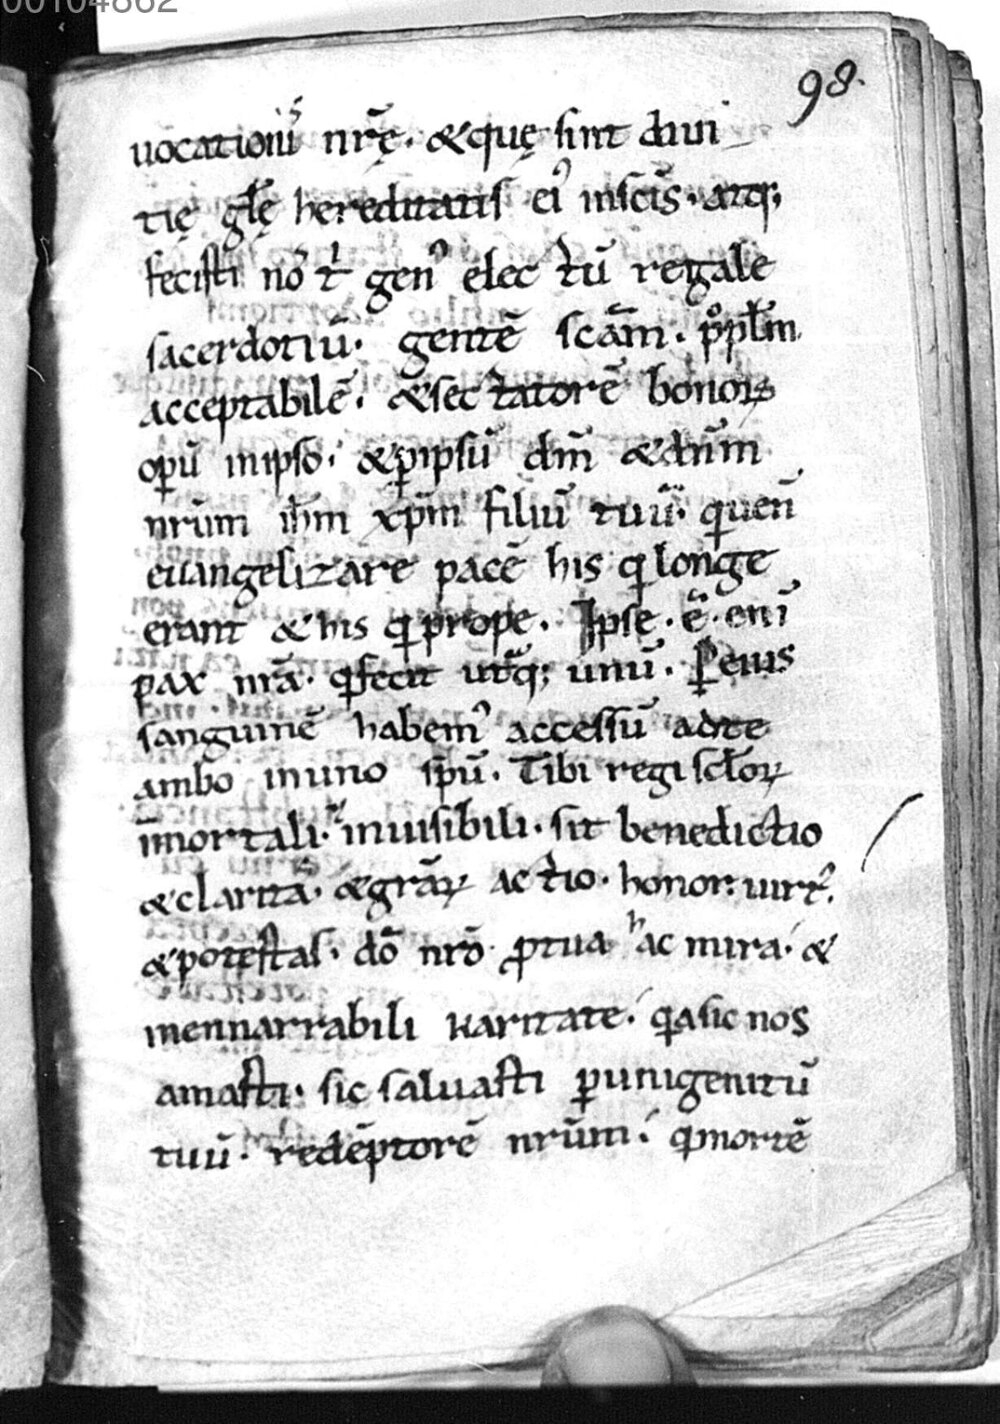 00104862
98.
uocationiſ nr̄ę. &quę ſint diui
tię gl̄ę hereditatiſ ei' inſcīs. atq;
feciſti nō t' gen' elec tū regale
ſacerdotiū. gentē scām. p̊pl̄m
acceptabilē. &ſec tatorē bonoꝝ
opū inipſo. &ꝑipſū dm̄ &dn̄m
nrūm ih̄m xp̄m filiū tuū. quen̄
euangelizare pacē his qi longe
erant & his qi prope. Ipſe. ē. eni
pax nr̄a. qi fecit utq̄; unū. Ꝑeius
ſanguinē habem' acceſſū adte
ambo inuno ſpū. Tibi regi ſcl̄oꝝ
īmortali. inuiſibili. ſit benedictio
&clarita. &grāꝝ ac tio. honor. uirt'.
&poteſtaſ. dō nrō. ꝓtua hac mira. &
inennarrabili karitate. qa ſic nos
amaſti. ſic ſaluaſti ꝑunigenitū
tuū. redēptorē nrūm. qi mortē